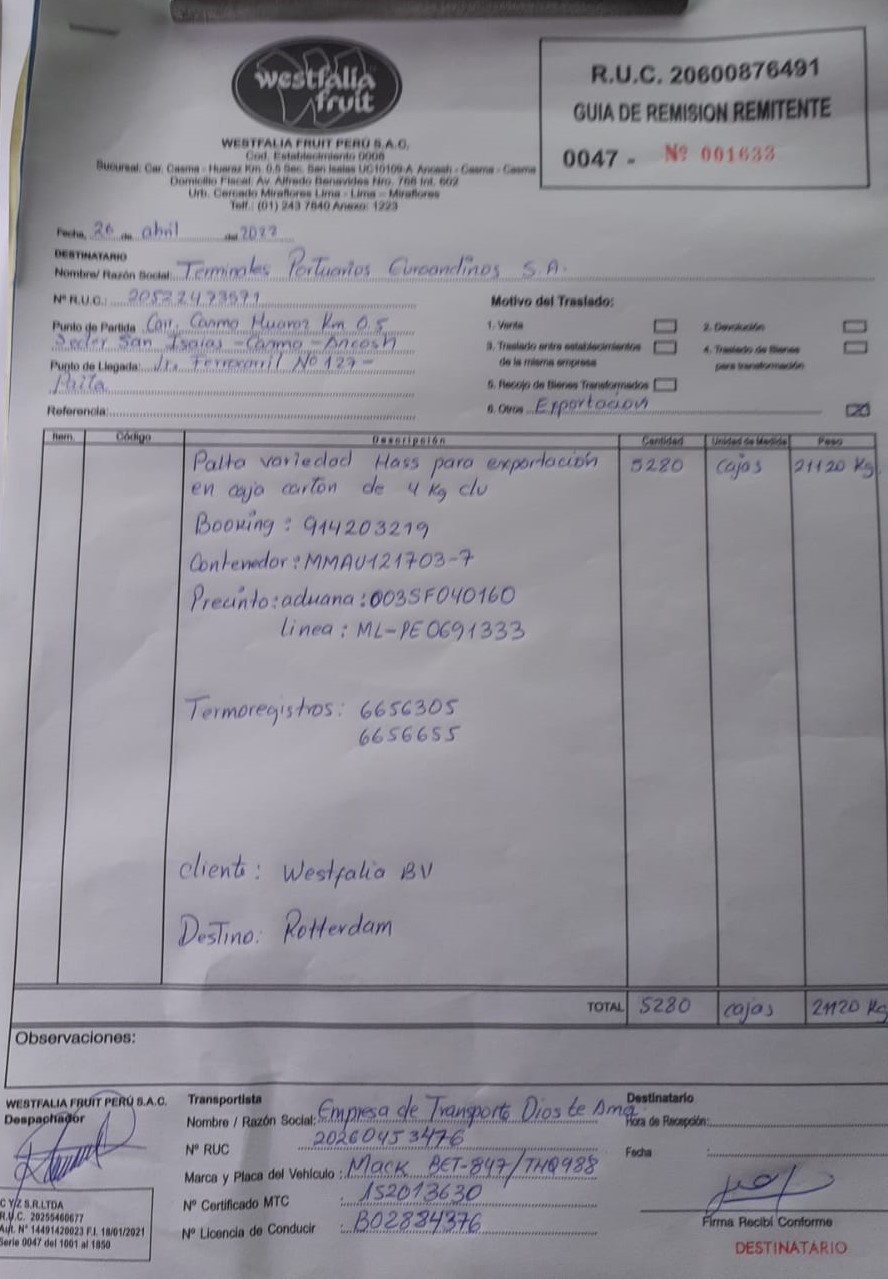 westfalia
fruit
R.U.C. 20600876491
GUIA DE REMISION REMITENTE
0047 - Nº 001633
WESTFALIA FRUIT PERÚ S.A.C.
Cod. Establecimiento 0006
Sucursal: Car. Casma - Huaraz Km. 0.5 Sec. San Isaias UC10109-A Ancash - Casma - Casma
Domicilio Fiscal: Av. Alfredo Benavides Nro. 768 Int. 602
Urb. Cercado Miraflores Lima - Lima - Miraflores
Telf.: (01) 243 7640 Anexo: 1223
Fecha, 26 de abril del
DESTINATARIO
Nombre/ Razón Social: Terminales Portuarios Euroandinos S.A.
Nº R.U.C.: 20522473571
Motivo del Traslado:
Punto de Partida Carr. Casma Huaraz Km 0.5
Sector San Isaias - Casma - Ancash
Punto de Llegada: Jr. Ferrocarril Nº 127 -
Paita
Referencia:
1. Venta
2. Devolución
3. Traslado entre establecimientos
de la misma empresa
4. Traslado de Bienes
para transformación
5. Recojo de Bienes Transformados
6. Otros Exportación
Item. Código Descripción Cantidad Unidad de Medida Peso
Palta variedad Hass para exportación 5280 cajas 21120 Kg
en caja carton de 4 Kg c/u
Booking: 914203219
Contenedor: MMAU121703-7
Precinto: aduana: 003SF040160
linea: ML-PE0691333
Termoregistros: 6656305
6656655
cliente: Westfalia BV
Destino: Rotterdam
TOTAL 5280 cajas 21120 Kg
Observaciones:
WESTFALIA FRUIT PERÚ S.A.C.
Despachador
Transportista
Nombre / Razón Social: Empresa de Transporte Dios te Ama
Nº RUC 20260453476
Marca y Placa del Vehículo: Mack BET-847/THQ988
Nº Certificado MTC : 152013630
Nº Licencia de Conducir : B02884376
Destinatario
Hora de Recepción:
Fecha :
Firma Recibí Conforme
DESTINATARIO
C Y Z S.R.LTDA
R.U.C. 20255460677
Aut. Nº 14491420023 F.I. 18/01/2021
Serie 0047 del 1001 al 1850